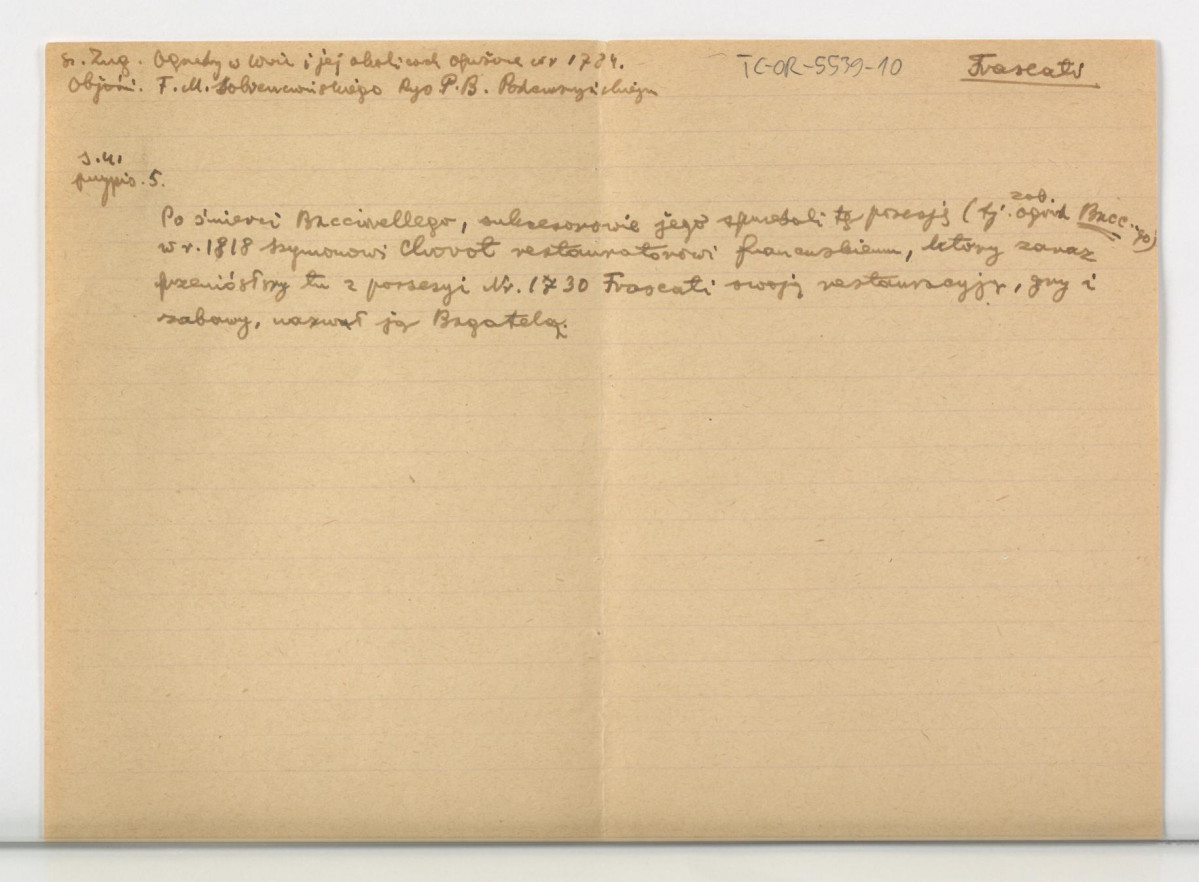 Sz. Zug. Ogrody w Wwie i jej okolicach opisane w r 1784.
TC-OR-5539-10
Frascati
Objaśn. F. M. Sobieszczańskiego Rys P. B. Podczaszyńskiego
s. 4.
przypis. 5.
Po śmierci Bacciarellego, sukcesorowie jego sprzedali tę posesję (tj. zab. ogród Bacc.go)
w r. 1818 Szymonowi Chovot restauratorowi francuskiemu, który zaraz
przeniósłszy tu z possesyi Nr. 1730 Frascati swoją restauracyję, gry i
zabawy, nazwał ją Bagatelą.